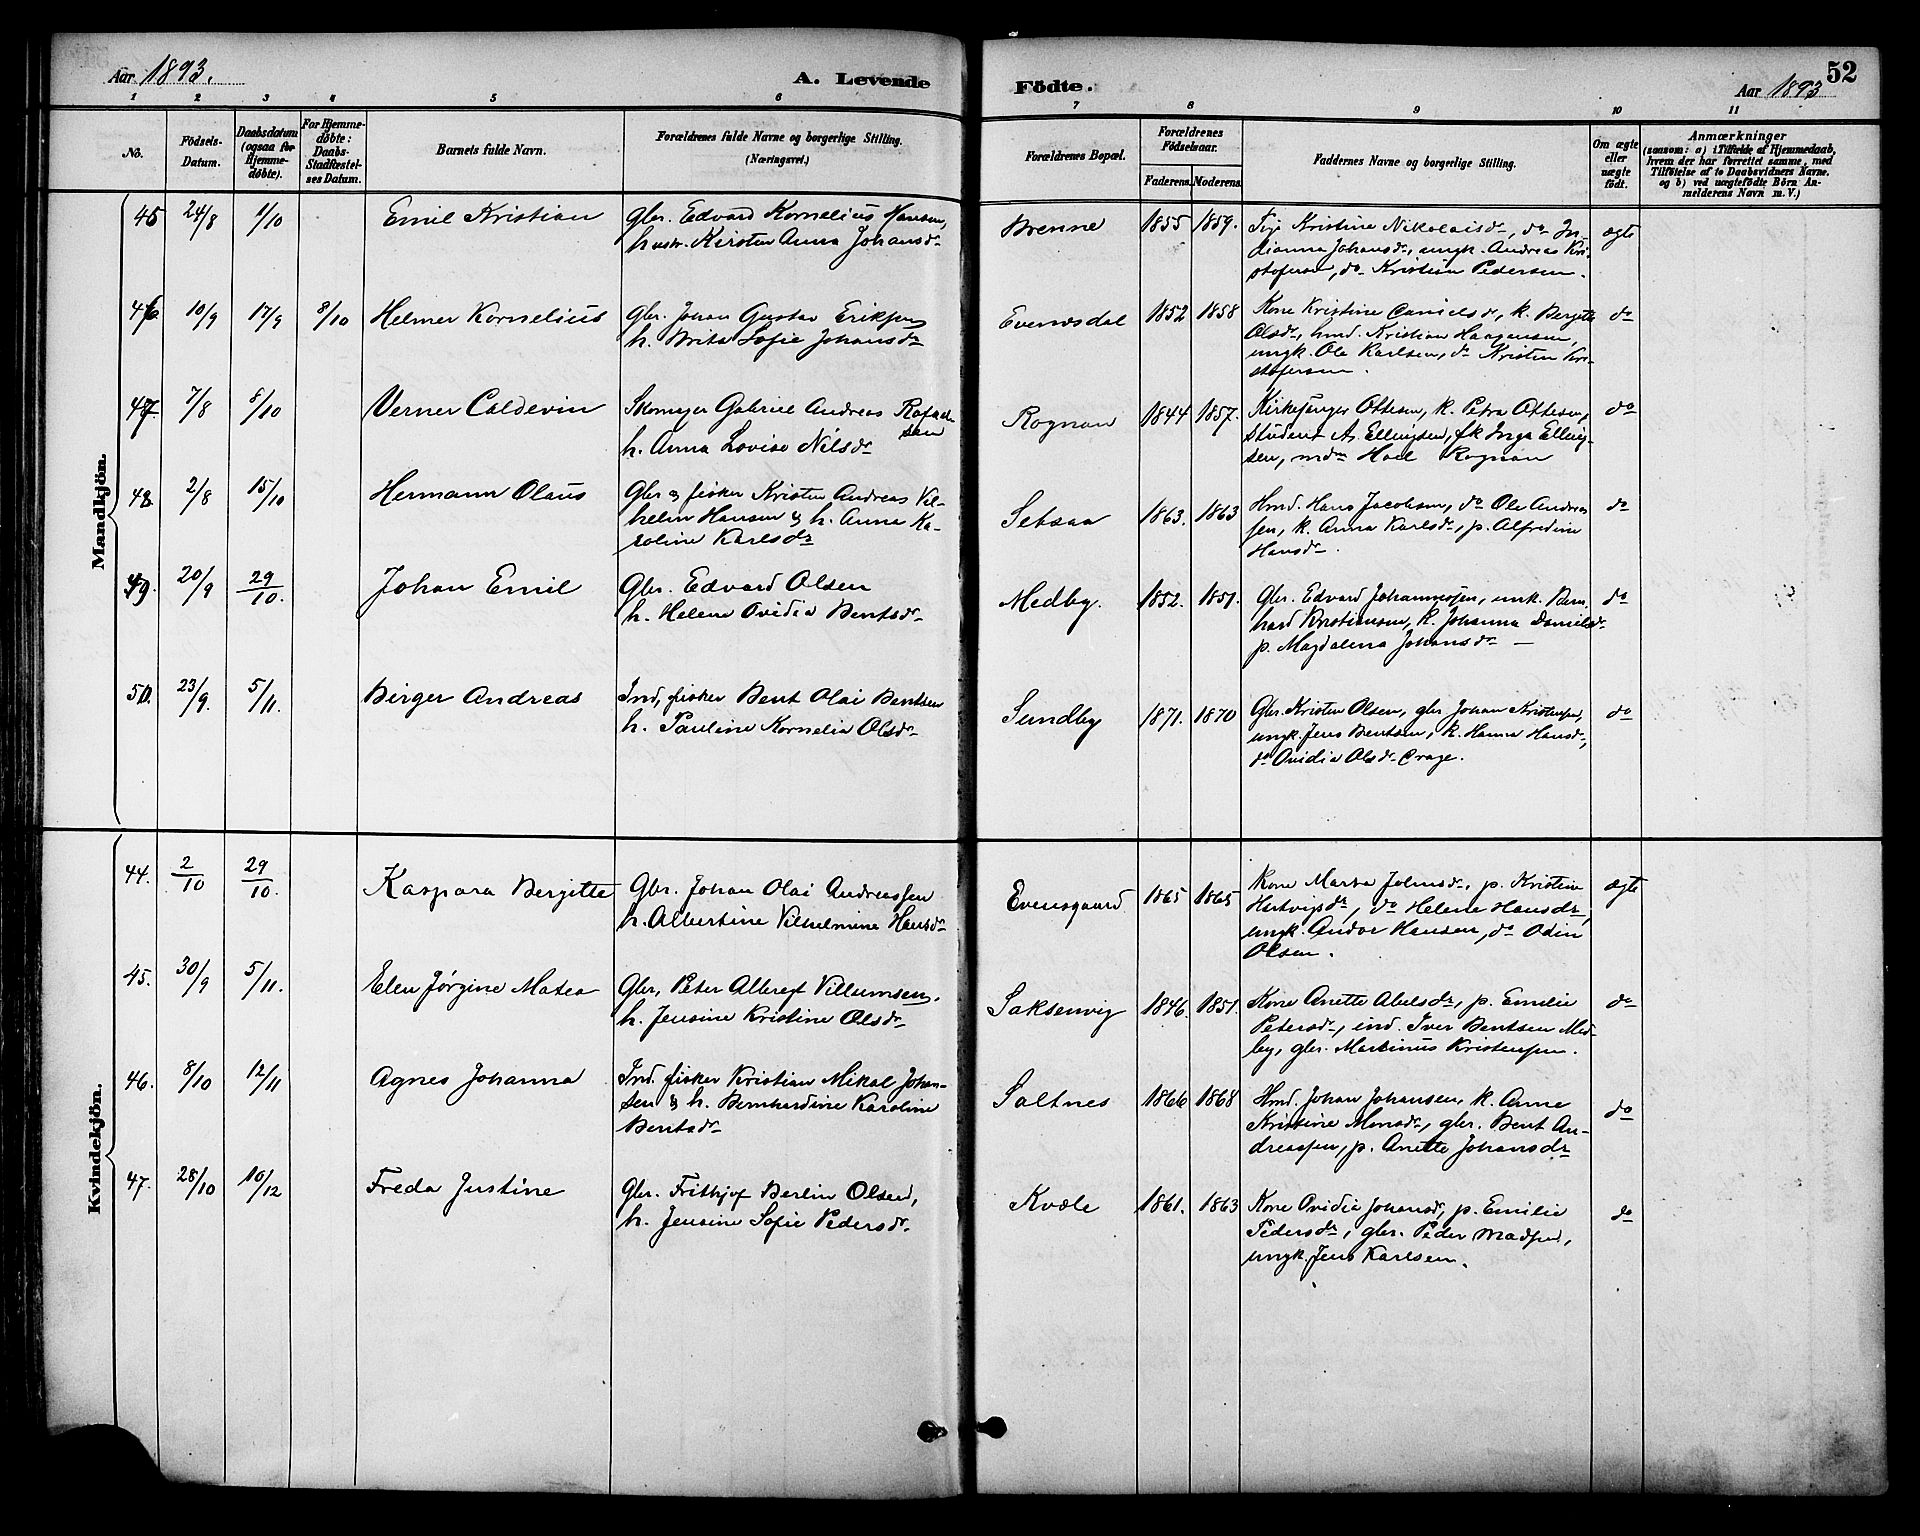 Aar 1893.
A. Levende
Födte.
Aar 1893
52
1 2 3 4 5 6 7 8 9 10 11
No.
Födsels-
Datum.
Daabsdatum
(ogsaa for
Hjemme-
döbte).
For Hjemme-
döbte:
Daabs-
Stadfæstel-
ses Datum.
Barnets fulde Navn.
Forældrenes fulde Navne og borgerlige Stilling.
(Næringsvei.)
Forældrenes Bopæl.
Forældrenes
Födselsaar.
Faderens. Moderens.
Faddernes Navne og borgerlige Stilling.
Om ægte
eller
uægte
födt.
Anmærkninger
(saasom: a) i Tilfælde af Hjemmedaab,
hvem der har forrettet samme, med
Tilföielse af to Daabsvidners Navne.
og b) ved uægtefödte Börn An-
melderens Navn m. V.)
Mandkjön.
45 24/8 1/10 Emil Kristian
gbr. Edvard Kornelius Hansen,
hustr. Kirsten Anna Johansdr
Brenne 1855 1859.
Pige Kristine Nikolaisdr, do In-
dianna Johansdr, ungk. Andreas Kri-
stofersen, do Kristian Pedersen.
ægte
46. 10/9 17/9 8/10 Helmer Kornelius
Gbr. Johan Gustav Eriksen
h. Brita Sofie Johansdr
Evensdal 1852 1858
Kone Kristine Danielsdr, k. Bergitte
Olsdr, hmd. Kristian Haagensen,
ungk. Ole Karlsen, do Kristen Kri-
stofersen.
do
47. 7/8 8/10 Verner Coldevin
Skomager Gabriel Andreas Rafael-
sen
h. Anna Lovise Nilsdr
Rognan 1844 1857.
Kirkesanger Ottesen, k. Petra Ottesen,
student A. Ellingsen, fk Inga Elling-
sen, mdm Hoel Rognan
do
48. 2/8 15/10 Hermann Olaus
Gbr & fisker Kristen Andreas Vil-
helm Hansen & h. Anna Ka-
roline Karlsdr
Setsaa 1863. 1863
Hmd. Hans Jacobsen, do Ole Andreas-
sen, k. Anna Karlsdr, p. Alfredine
Hansdr.
do
49. 20/9 29/10. Johan Emil
Gbr. Edvard Olsen
h. Helene Ovidia Bentsdr
Medby. 1852. 1851.
Gbr. Edvard Johannessen, unk. Bern-
hard Kristiansen, k. Johanna Danielsdr
p. Magdalena Johansdr —
do
50. 23/9. 5/11. Birger Andreas
Ind, fisker Bent Olai Bentsen
h. Pauline Kornelia Olsdr
Sundby 1871. 1870
Gbr. Kristen Olsen, gbr. Johan Kristensen,
ungk. Jens Bentsen, k. Hanna Hansdr,
do Ovidia Olsdr
do
Kvindekjön.
44. 2/10 29/10. Kaspara Bergitte
Gbr. Johan Olai Andreassen
h. Albertine Vilhelmine Hansdr
Evensgaard 1865 1865
Kone Marta Johnsdr, p. Kristine
Hartvigsdr, do Helene Hansdr,
ungk. Andor Hansen, do Odin
Olsen.
ægte
45. 30/9 5/11. Elen Jørgine Matea
Gbr, Peter Albregt Villumsen.
h. Jensine Kristine Olsdr
Saksenvig 1846. 1851.
Kone Anette Abelsdr, p. Emilie
Petersdr, ind. Iver Bentsen Med-
by, gbr. Martinus Kristensen.
do
46. 8/10 12/11 Agnes Johanna
Ind. fisker Kristian Mikal Johan-
sen & h. Bernhardine Karoline
Bentsdr
Saltnes 1866 1868
Hmd. Johan Johansen, k. Anne
Kristine Monsdr, gbr. Bent An-
dreassen, p. Anette Johansdr
do
47. 28/10 10/12 Freda Justine
Gbr. Frithjof Berlin Olsen,
h. Jensine Sofie Pedersdr.
Kvæle 1861. 1863
Kone Ovidia Johansdr, p. Emilie
Pedersdr, gbr. Peder Madsen,
ungk. Jens Karlsen.
do